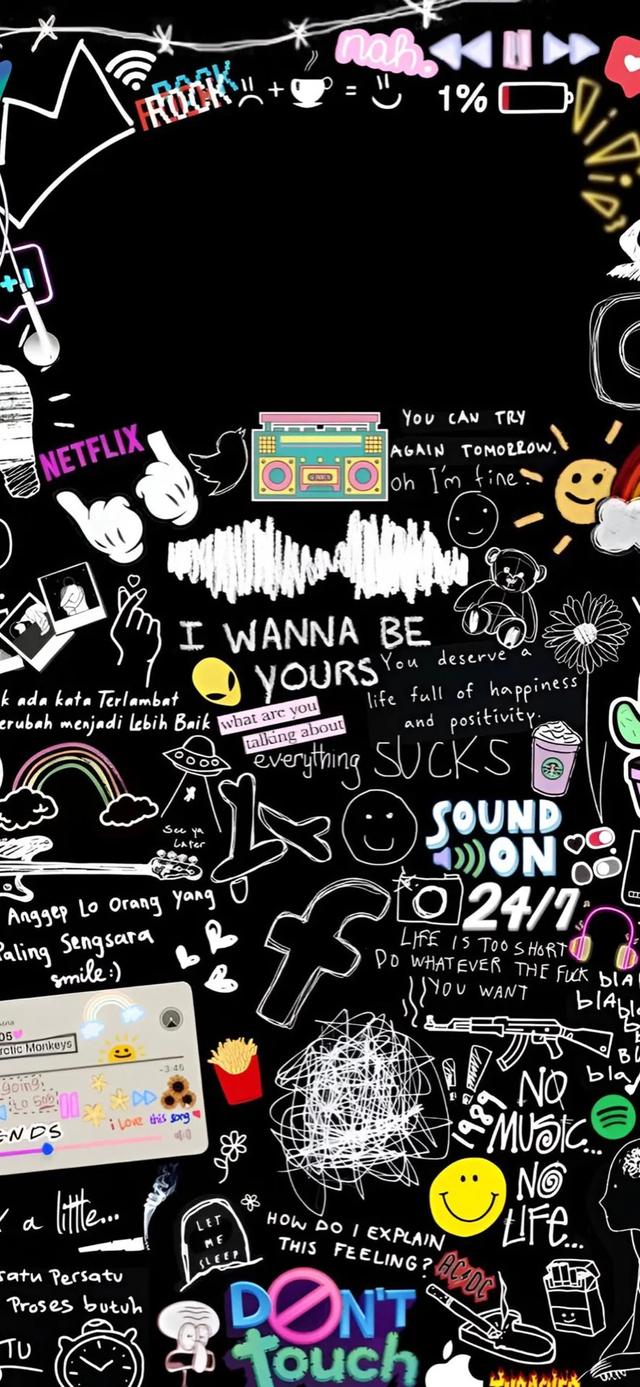 nah.
ROCK
+ =
1%
+1
NETFLIX
YOU CAN TRY
AGAIN TOMORROW.
oh I'm fine.
I WANNA BE
YOURS
You deserve a
life full of happiness
and positivity.
k ada kata Terlambat
erubah menjadi Lebih Baik
what are you
talking about
everything SUCKS
See ya
Later
SOUND
ON
24/7
Anggep Lo Orang yang
Paling Sengsara
smile:)
LIFE IS TOO SHORT
DO WHATEVER THE FUCK
YOU WANT
bla
bla
bla
05
rctic Monkeys
-3:46
going
to 505
i love this song
ENDS
!!
1989
NO
MUSIC...
NO
LIFE...
a little...
LET
ME
SLEEP
HOW DO I EXPLAIN
THIS FEELING?
AC/DC
satu Persatu
Proses butuh
TU
DON'T
Touch